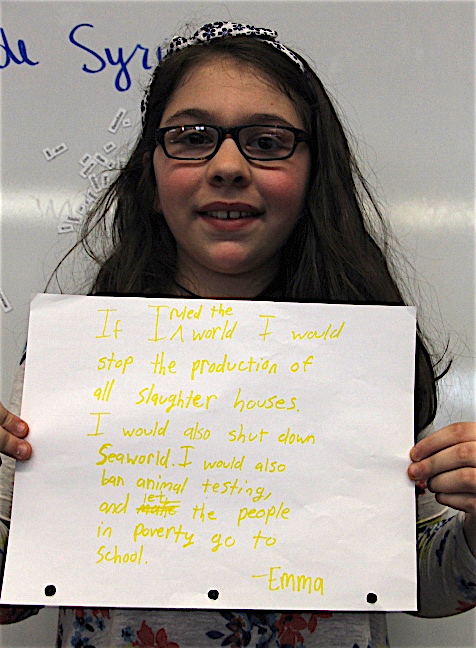 de Syri
If I ruled the world I would
stop the production of
all slaughter houses.
I would also shut down
Seaworld. I would also
ban animal testing,
and let the people
in poverty go to
School.
-Emma